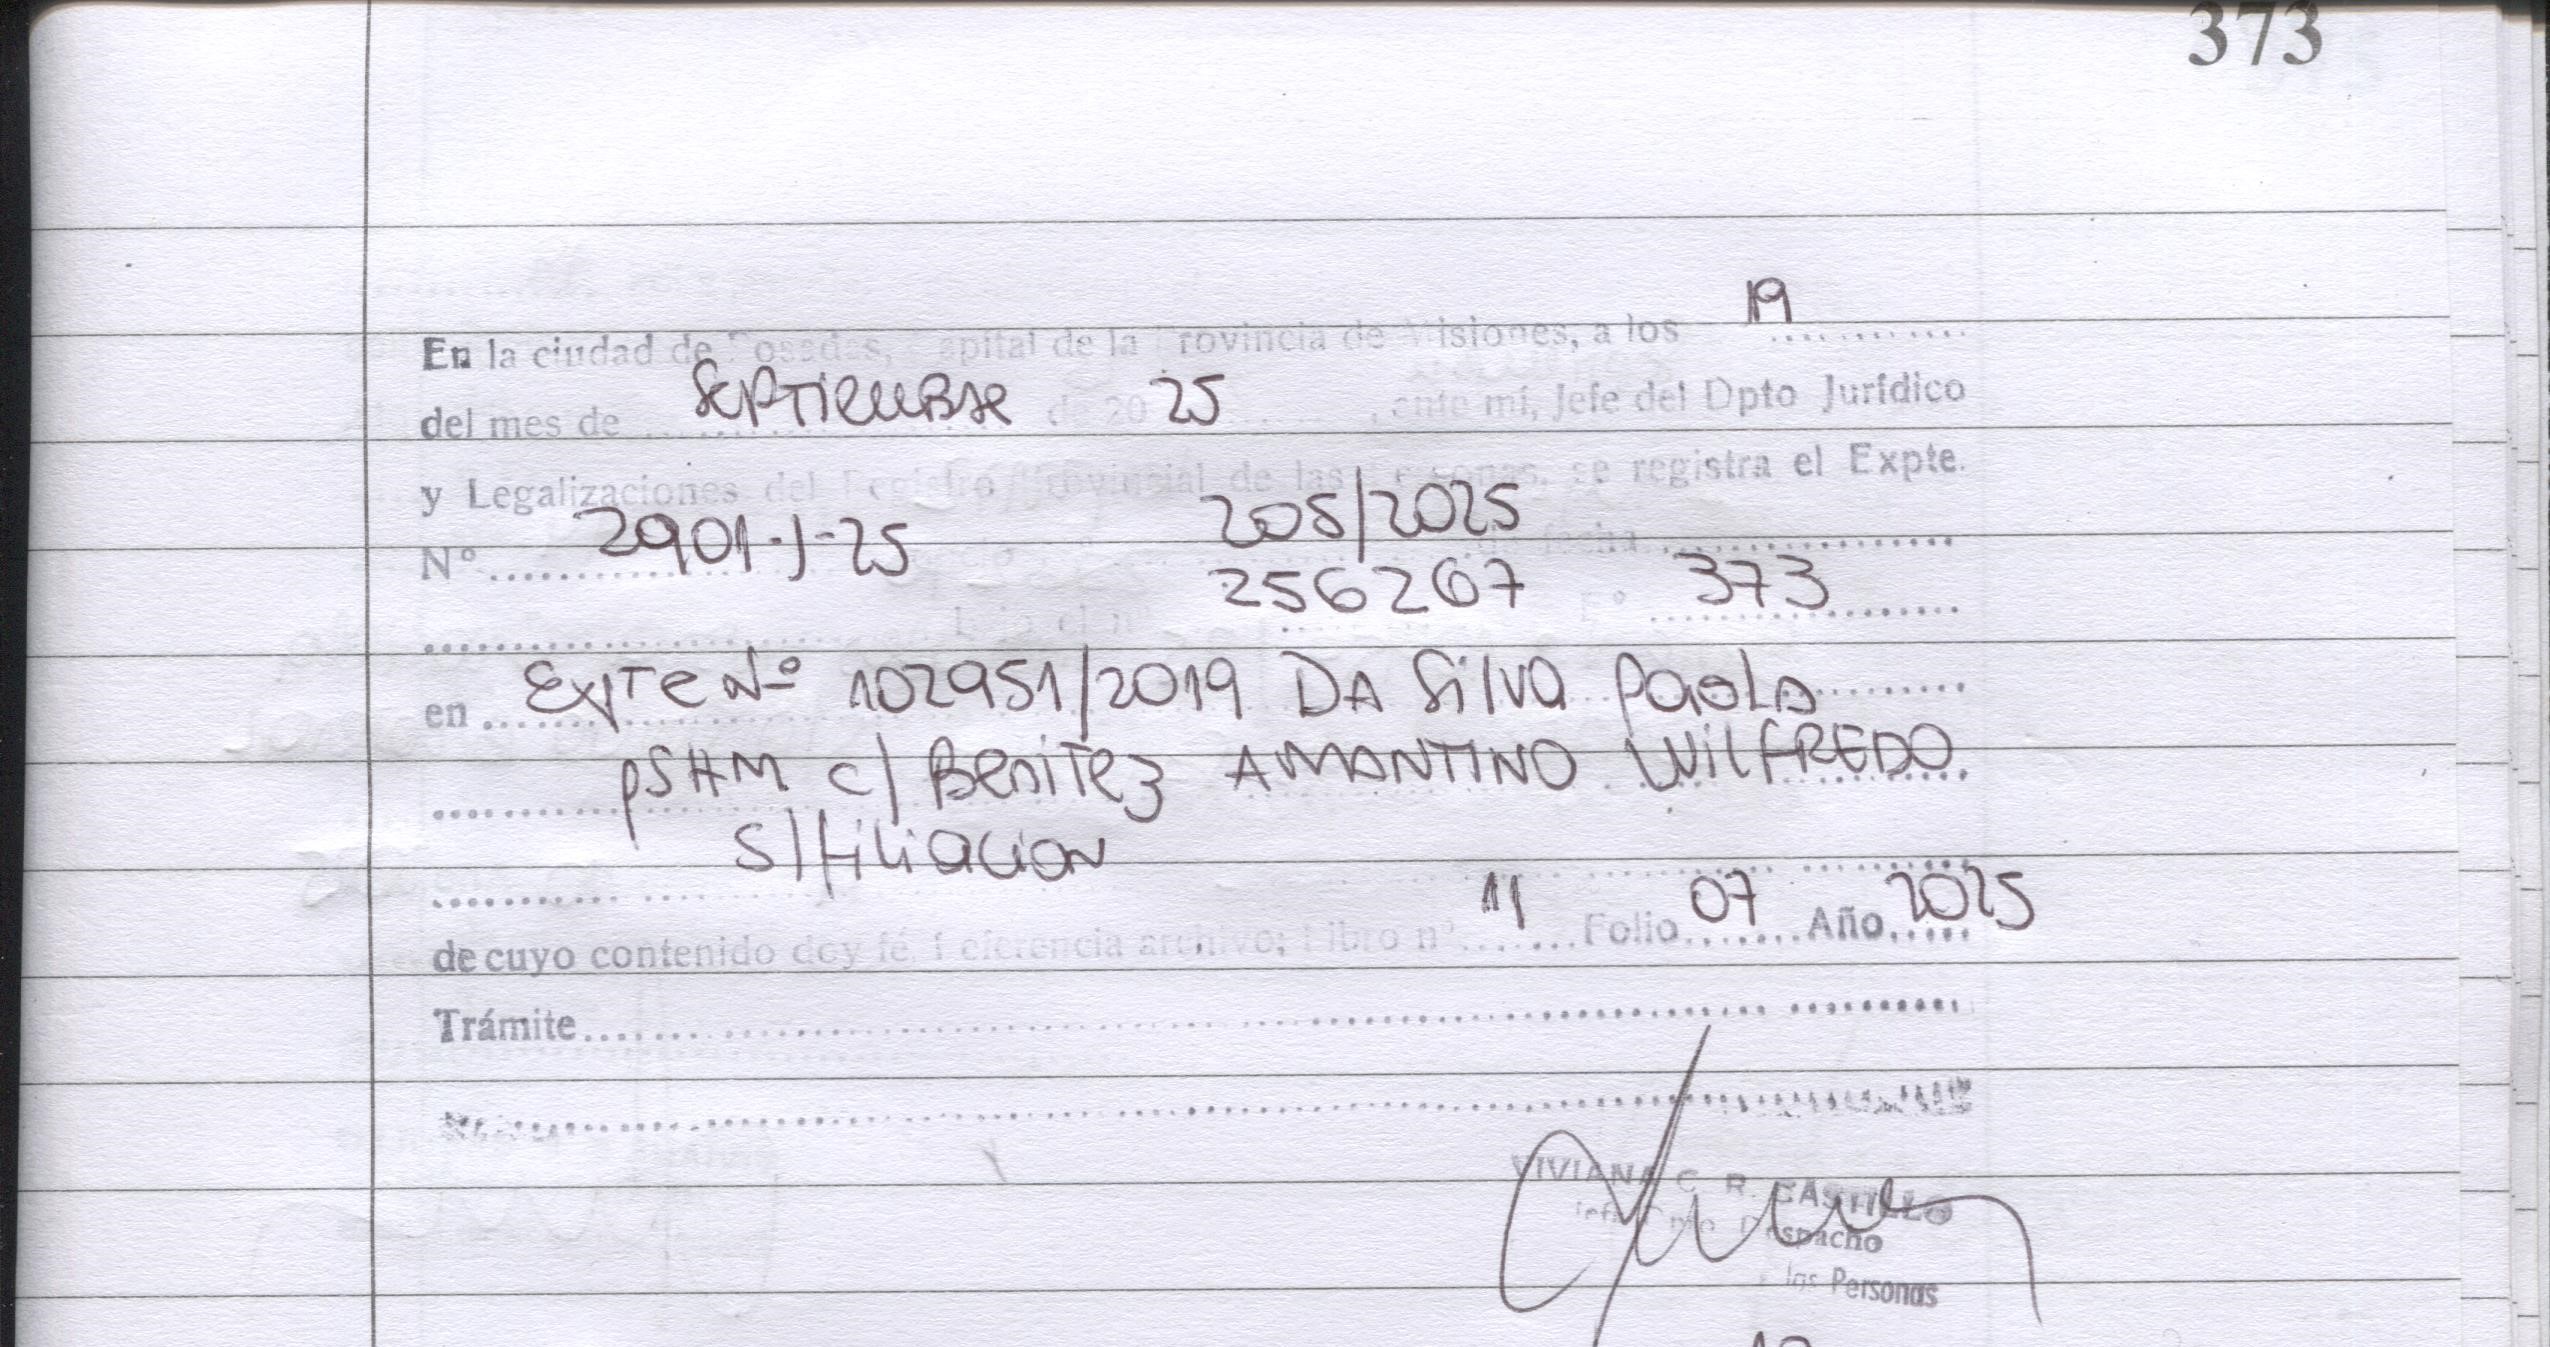 373
19
En la ciudad de Posadas, Capital de la Provincia de Misiones, a los ............
del mes de ........ Septiembre de 20 25 ........, ante mí, Jefe del Dpto Jurídico
y Legalizaciones del Registro Provincial de las Personas, se registra el Expte.
Nº ........ 2901-J-25 205/2025 de fecha ........
........ 256267 Fº 373 ........
en ........ Expte Nº 102951/2019 DA Silva Paola
PSHM c/ Benitez AMANTINO WILFREDO
S/filiacion
de cuyo contenido doy fé, Referencia archivo; Libro nº 11 Folio 07 Año 2025
Trámite ........
VIVIANA C. R. CASTILLO
Jefe Dpto Despacho
las Personas